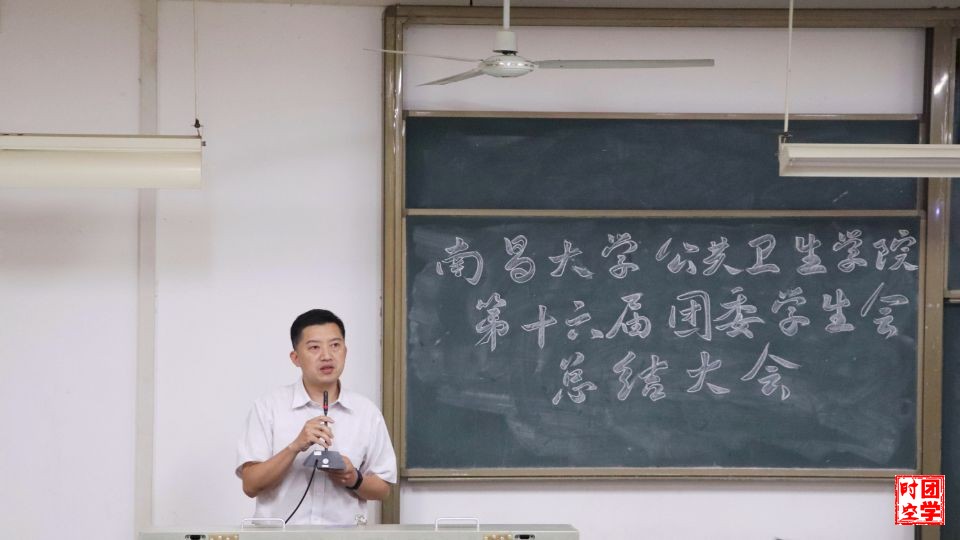 南昌大学公共卫生学院
第十六届团委学生会
总结大会
团学
时空